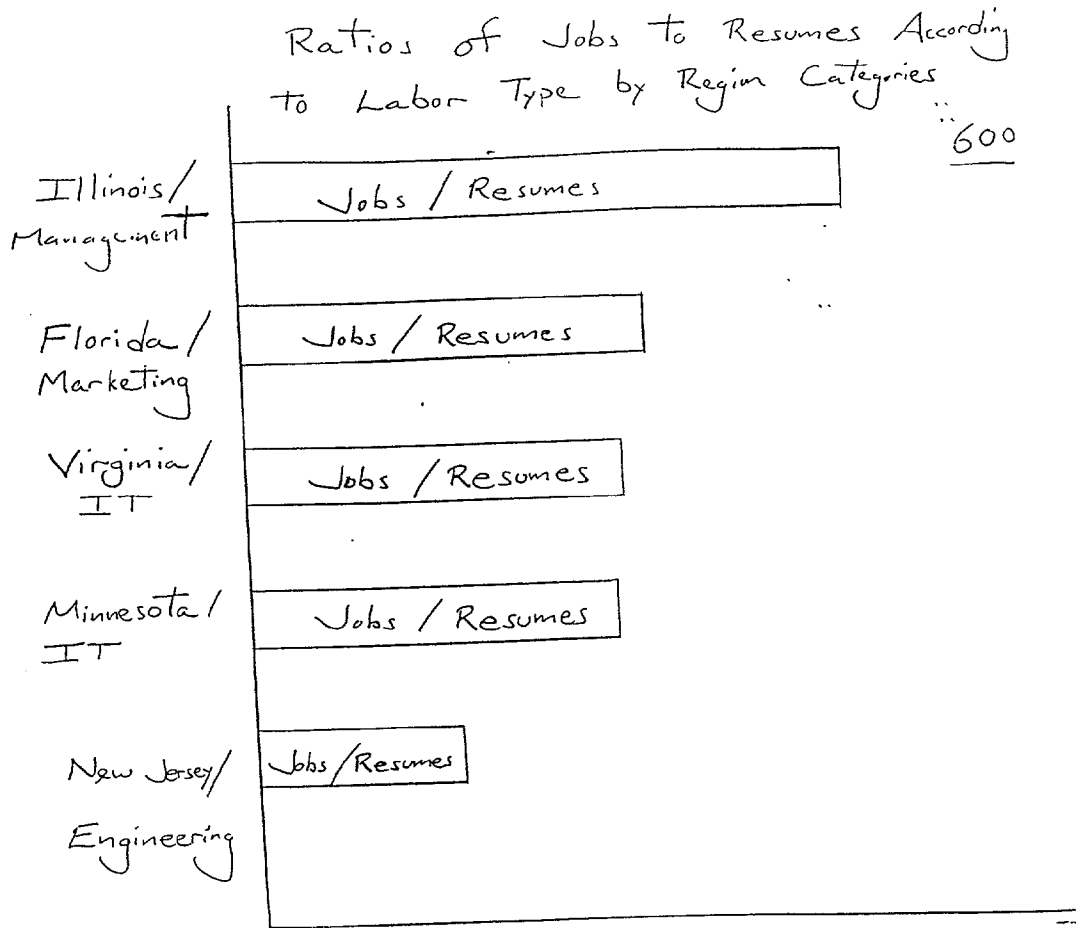 Ratios of Jobs to Resumes According
to Labor Type by Region Categories
600
Illinois/
Management
Jobs / Resumes
Florida/
Marketing
Jobs / Resumes
Virginia/
IT
Jobs / Resumes
Minnesota/
IT
Jobs / Resumes
New Jersey/
Engineering
Jobs/Resumes